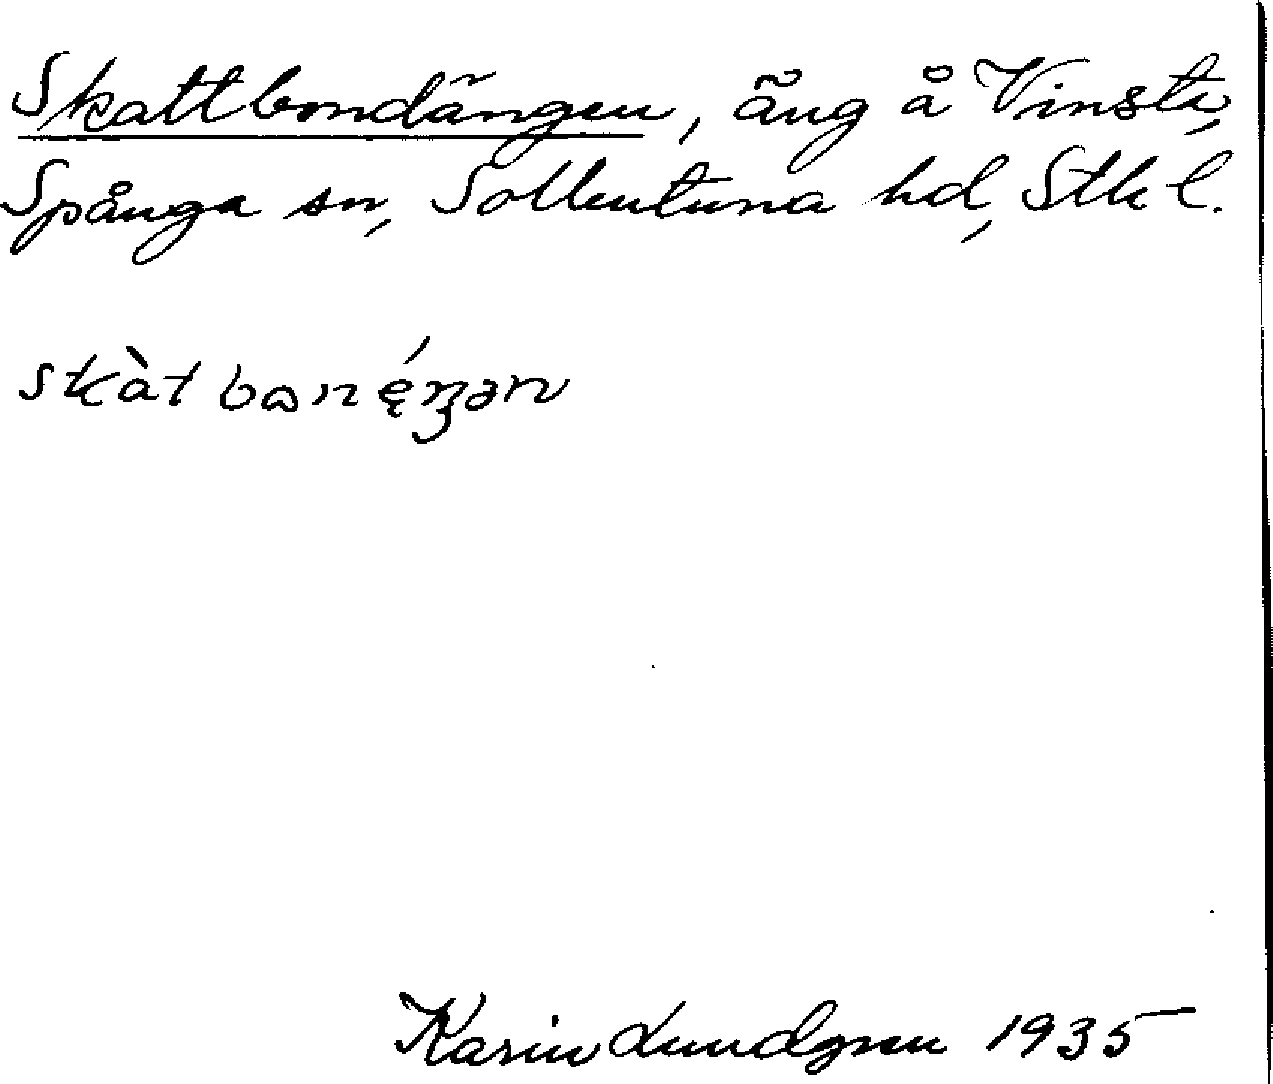 Skattbondängen, äng å Vinsta,
Spånga sn, Sollentuna hd, Stk l.
skàt bɷn ę́ŋən
Karin Lundgren 1935